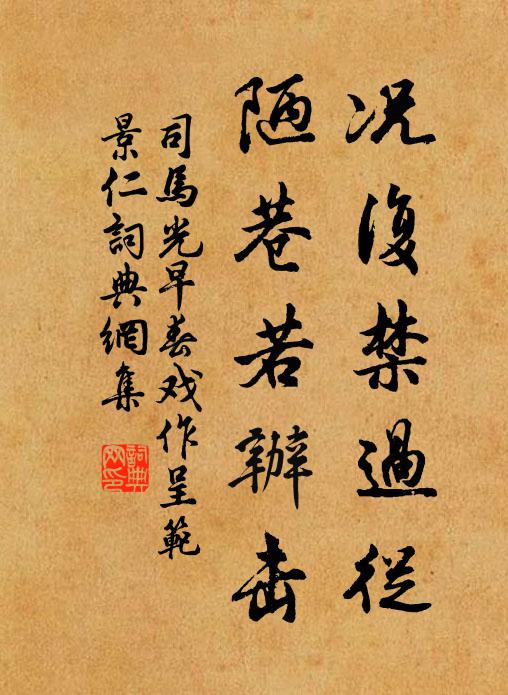 况復禁過從
陋巷若辦
司馬光早春戏作呈範
景仁詞典網集
詞典
网印